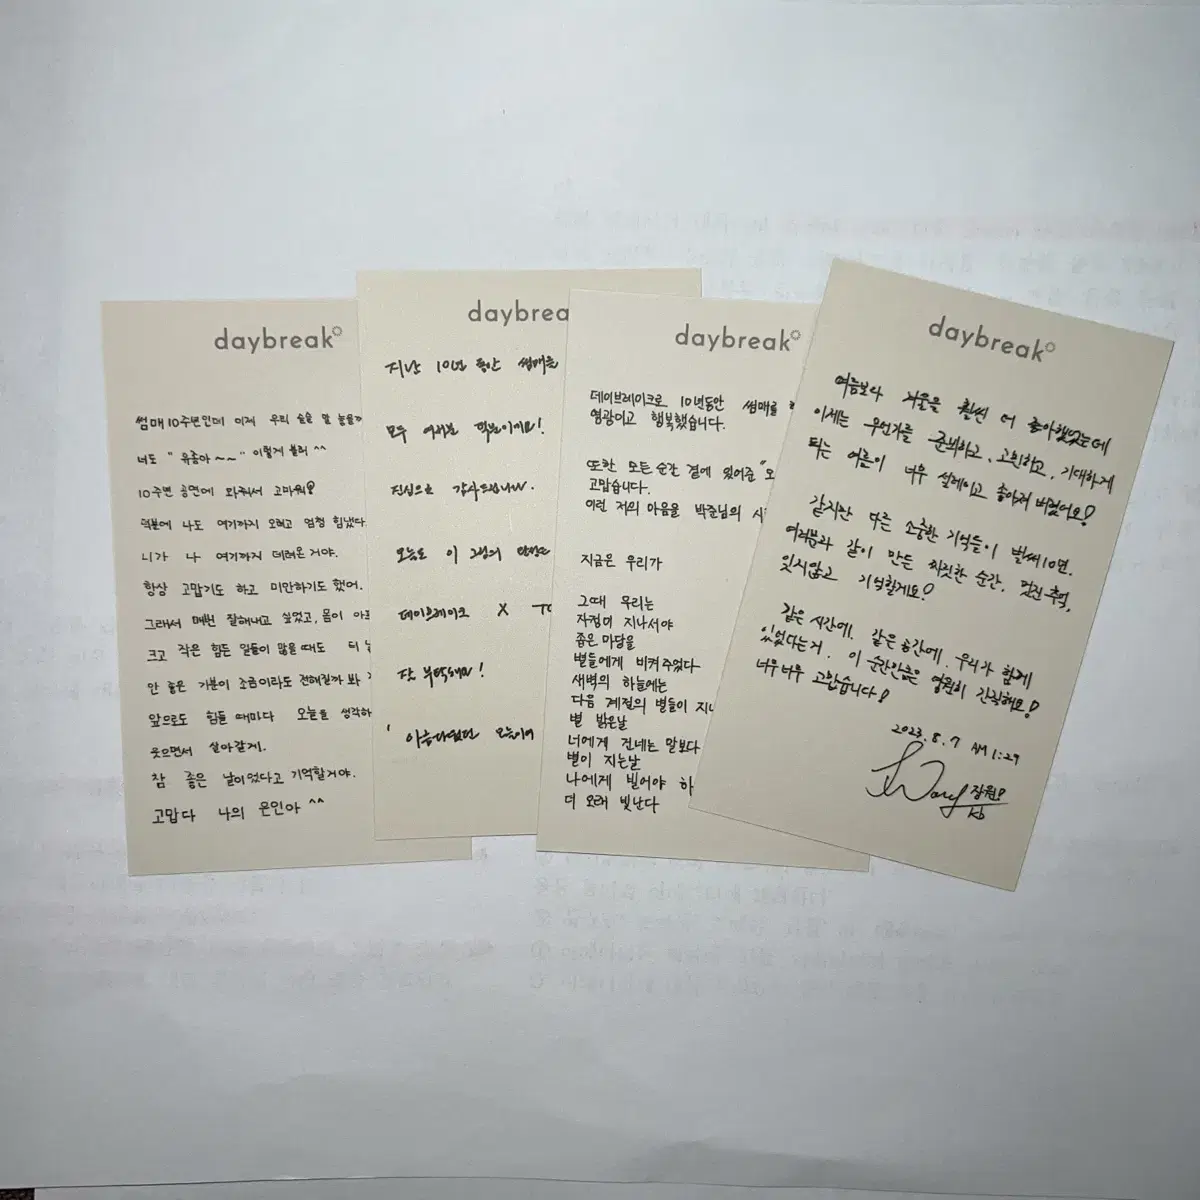 daybreak
썸매 10주년인데 이제 우리 슬슬 말 놓을까
너도 "유종아~~" 이렇게 불러 ^^
10주년 공연에 와줘서 고마워!
덕분에 나도 여기까지 오려고 엄청 힘냈다.
니가 나 여기까지 데려온거야.
항상 고맙기도 하고 미안하기도 했어.
그래서 매번 잘해내고 싶었고, 몸이 아프
크고 작은 힘든 일들이 많을때도 티
안 좋은 기분이 조금이라도 전해질까 봐
앞으로도 힘들 때마다 오늘을 생각하
웃으면서 살아갈게.
참 좋은 날이었다고 기억할거야.
고맙다 나의 은인아 ^^
daybrea
지난 10년 동안 썸매를
모두 여러분 덕분이에요!
진심으로 감사드립니다.
오늘도 이
데이브레이크 X
잘 부탁해요!
' 아름다웠던 오늘이여
daybreak
데이브레이크로 10년동안 썸매를
영광이고 행복했습니다.
또한 모든 순간 곁에 있어준 "오
고맙습니다.
이런 저의 마음을 박준님의 시
지금은 우리가
그때 우리는
자정이 지나서야
좁은 마당을
별들에게 비켜주었다
새벽의 하늘에는
다음 계절의 별들이 지나
별 밝은날
너에게 건네는 말보다
별이 지는날
나에게 빌어야 하
더 오래 빛난다
daybreak
여름보다 겨울을 훨씬 더 좋아했었는데
이제는 무언가를 준비하고, 고민하고, 기대하게
되는 여름이 너무 설레이고 좋아져 버렸어요!
같지만 다른 소중한 기억들이 벌써 10년.
여러분과 같이 만든 찌릿한 순간, 멋진 추억,
잊지않고 기억할게요!
같은 시간에, 같은 공간에, 우리가 함께
있었다는거. 이 순간만큼은 영원히 간직해요!
너무너무 고맙습니다!
2023. 8. 7 AM 1:29
장원